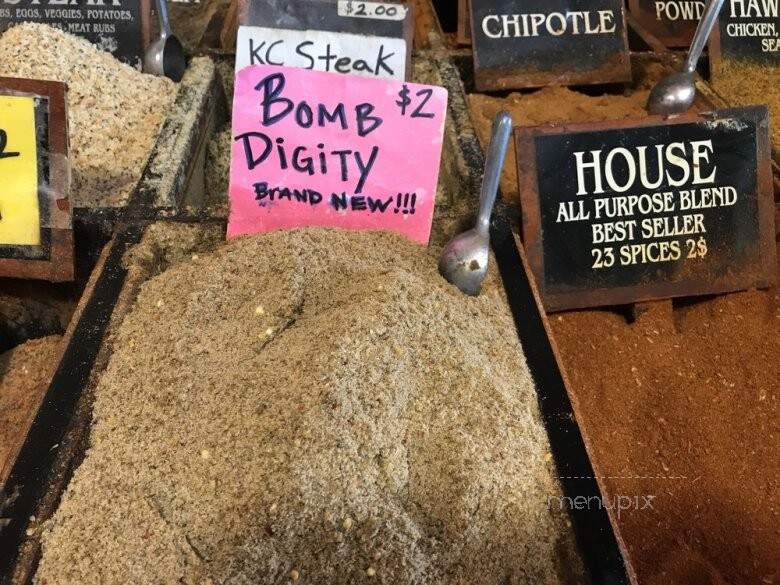 BS, EGGS, VEGGIES, POTATOES,
MEAT RUBS
$2.00
KC Steak
BOMB $2
DIGITY
BRAND NEW!!!
CHIPOTLE
HOUSE
ALL PURPOSE BLEND
BEST SELLER
23 SPICES 2$
POWD
HAW
CHICKEN,
SEA
2
menupix